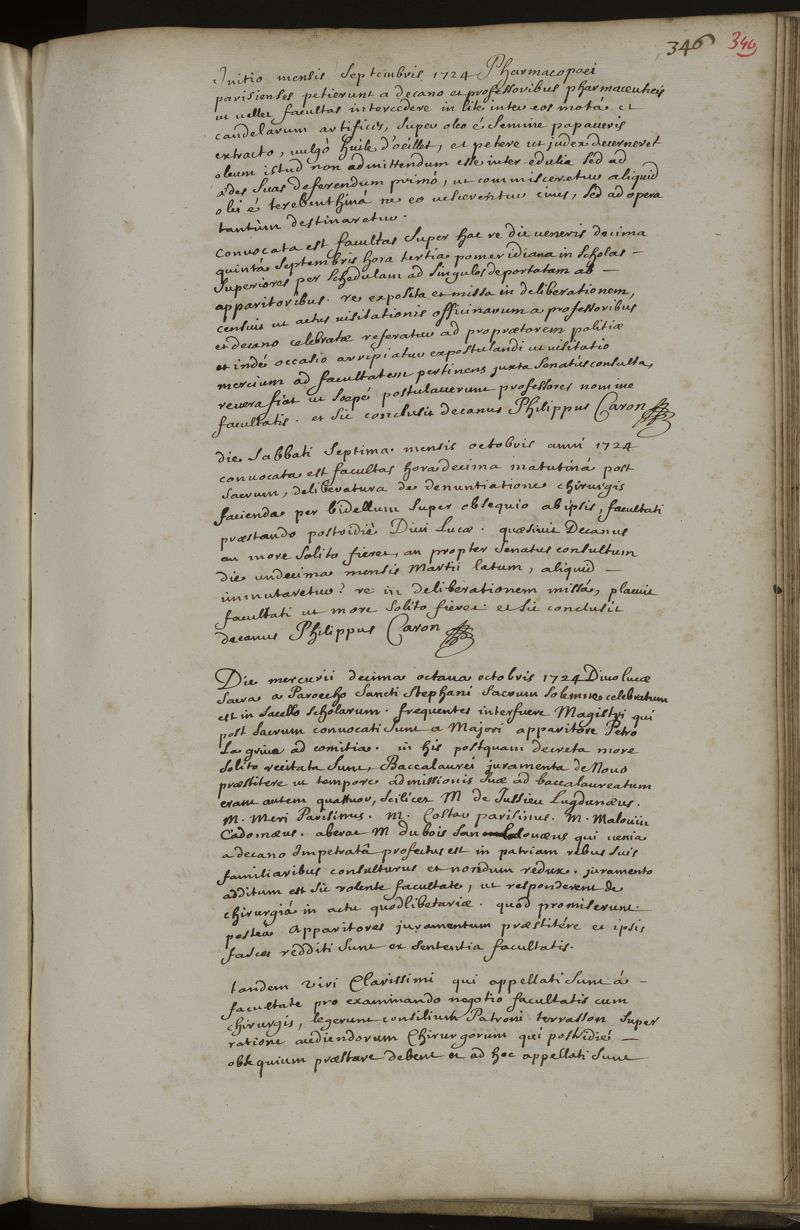 346 346
Initio mensis Septembris 1724 Pharmacopoei
parisienses petierunt a decano et professoribus pharmaceuticis
ut vellet facultas intercedere in lite inter eos motâ et
candelarum artifices, super oleo é Semine papaveris
extracto, vulgò huile d'oeillet, et petere ut judex decerneret
oleum istud non admittendum esse inter edulia sed ad
ædes suas deferendum primò, ut commisceretur aliquid
olei é terebenthinâ ne eo vescerentur cives, sed ad opera
tantùm destinaretur.
Convocata est facultas Super hac re die veneris decima
quinta Septembris hora tertia pomeridiana in Scholas –
Superiores per Schedulam ad Singulos deportatam ab –
apparitoribus. re exposita et missa in deliberationem,
censuit ut actus visitationis officinarum a professoribus
et decano celebratæ referatur ad propraetorem politiæ
et indè occasio arripiatur expostulandi ut visitatio
mercium ad facultatem pertinens juxta Senatûsconsulta,
revera fiat ut Sæpè postulaverunt professores nomine
facultatis. et Sic conclusit decanus Philippus Caron
die Sabbati Septima mensis octobris anni 1724
convocata est facultas hora decima matutinâ post
Sacrum, deliberatura de denuntiatione chirurgis
facienda per bidellum Super obsequio ab ipsis, facultati
præstando postridiè Divi Lucæ. quæsivit Decanus
an more Solito fieret, an propter Senatus consultum
die undecima mensis Martii latum, aliquid –
immutaretur? re in deliberationem missâ, placuit
facultati ut more Solito fieret. et Sic conclusit
decanus Philippus Caron
Die mercurii decima octava octobris 1724 Divo lucæ
Sacra a Paroecho Sancti Stephani Sacrum Solemne celebratum
est in Sacello Scholarum. frequentes interfuere Magistri qui
post Sacrum convocati Sunt a Majori apparitore Petro
La grive ad comitia. in his postquam decreta more
Solito recitata Sunt, Baccalaurei juramenta de Novo
præstitere ut tempore admissionis Suæ ad baccalaureatum
erant autem quattuor, Scilicet M de Jussieu Lugdunæus.
M. Meri Parisinus. M. Costar parisinus. M. Malouin
Cadomæus. aberat M dubois qui venia
a decano Impetratâ profectus est in patriam rebus Suis
familiaribus consulturus et nondum redux. juramento
additum est Sic volente facultate, ut responderent de
chirurgiâ in actu quodlibetariæ. quod promiserunt.
posteà Apparitores juramentum præstitére et ipsis
fasces redditi Sunt ex Sententia facultatis.
tandem viri Clarissimi qui appellati Sunt â –
facultate pro examinando negotio facultatis cum
chirurgis, legerunt consilium Patroni terrasson Super
ratione audiendorum Chirurgorum qui postridiè —
obsequium præstare debent et ad hoc appellati Sunt